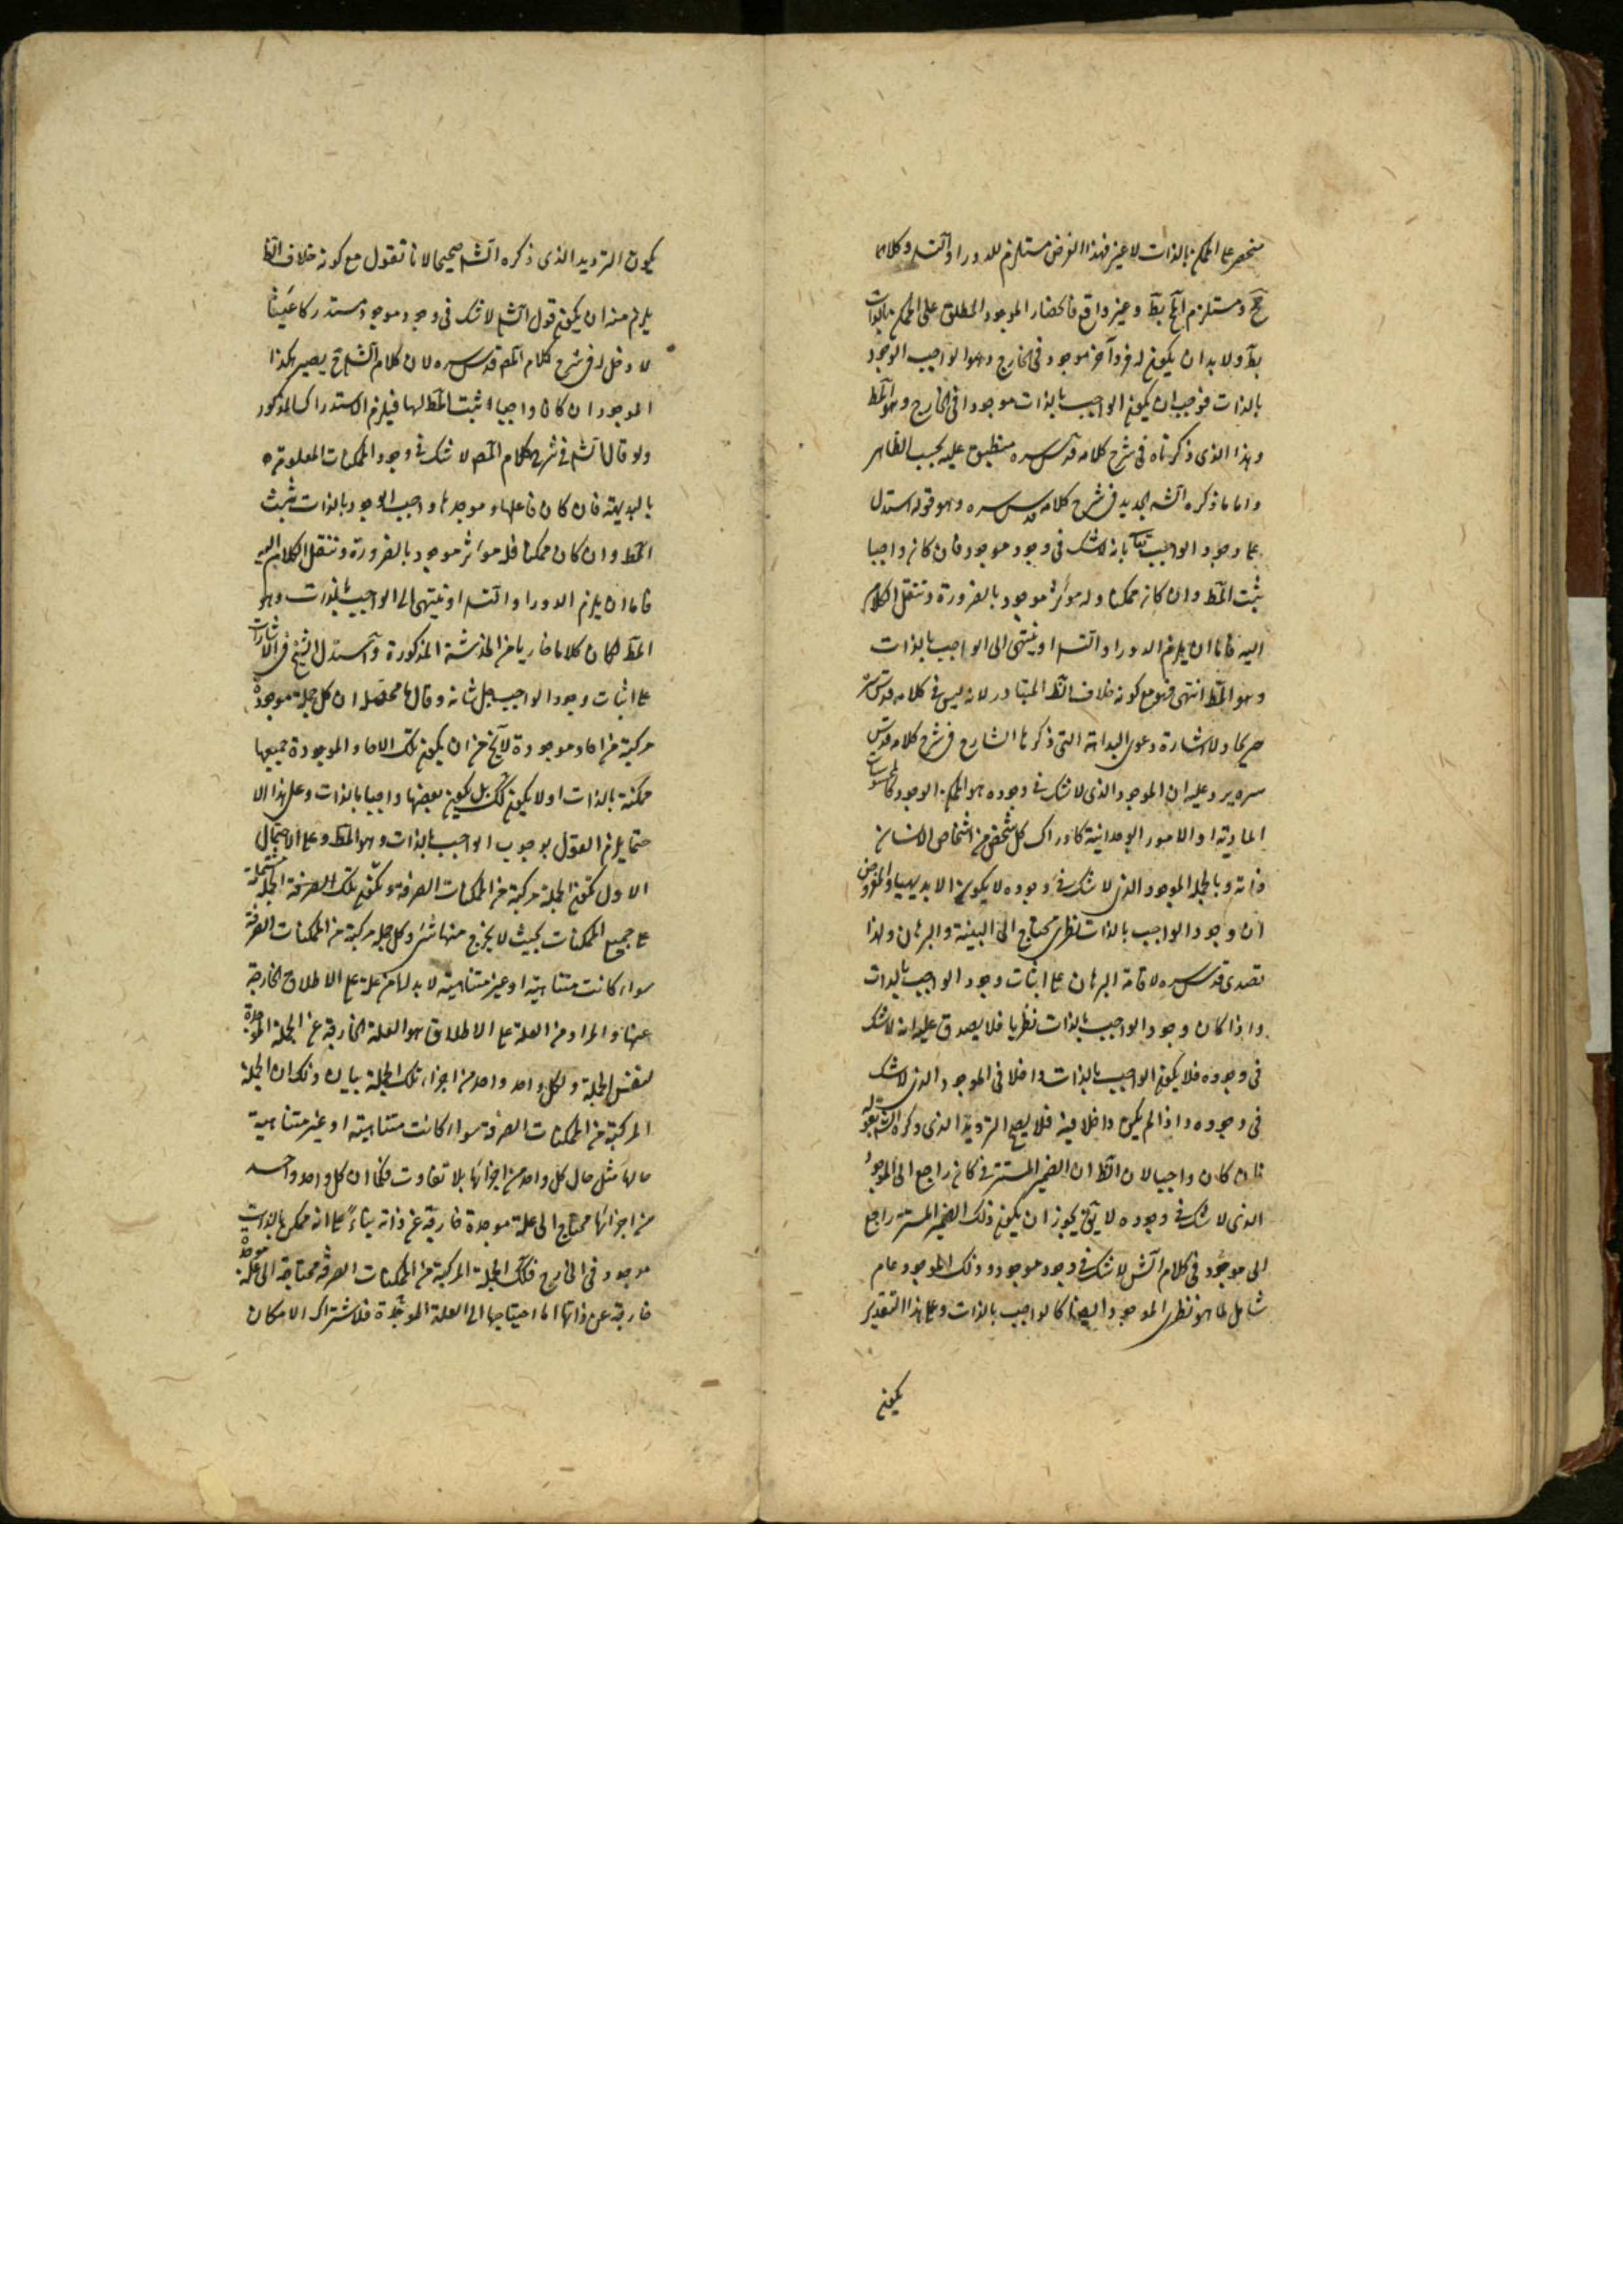 منحصر على الممكن بالذات لا غير فهذا الفرض مستلزم للدور او التسه وكلاهما
مح ومستلزم المح بط وغير واقع فانحضار الموجود المطلق على الممكن بالذات
بط ولا بد ان يكون له فرد آخر موجود فى الخارج وهو الواجب الوجود
بالذات فوجب ان يكون الواجب بالذات موجودا فى الخارج وهو المط
وهذا الذى ذكرناه فى شرح كلامه قدس سره منطبق عليه بحسب الظاهر
واما ما ذكره الشه الجديد فى شرح كلامه قدس سره وهو قوله استدل
على وجود الواجب تعا بانه لا شك فى وجود موجود فان كان واجبا
ثبت المط وان كان ممكنا وله مؤثر موجود بالضرورة وننقل الكلام
اليه فاما ان يلزم الدور او التسه او ينتهى الى الواجب بالذات
وهو المط انتهى فهو مع كونه خلاف الظ المتبادر لانه ليس فى كلامه قدس سره
صريحا ولا اشارة دعوى البداهة التى ذكرها الشارح فى شرح كلامه قدس
سره يرد عليه ان الموجود الذى لا شك فى وجوده هو الممكن الوجود كالمحسوسات
المادية او الامور الوجدانية كادراك كل شخص من اشخاص الانسان
ذاته وبالجملة الموجود الذى لا شك فى وجوده لا يكون الا بديهيا والمفروض
ان وجود الواجب بالذات نظرى محتاج الى البينة والبرهان ولهذا
تصدى قدس سره لاقامة البرهان على اثبات وجود الواجب بالذات
واذا كان وجود الواجب بالذات نظريا فلا يصدق عليه انه لا شك
فى وجوده فلا يكون الواجب بالذات داخلا فى الموجود الذى لا شك
فى وجوده واذا لم يكن داخلا فيه فلا يصح الترديد الذى ذكره الشه بقوله
فان كان واجبا لان الظ ان الضمير المستتر فى كان راجع الى الموجود
الذى لا شك فى وجوده لا يق يجوز ان يكون ذلك الضمير المستتر راجع
الى موجود فى كلام الش لا شك فى وجود موجود وذلك الموجود عام
شامل لما هو نظرى الموجود ايضا كالواجب بالذات وعلى هذا التقدير
يكون
يكون الترديد الذى ذكره الشه صحيحا لانا نقول مع كونه خلاف الظ
يلزم منه ان يكون قول الشه لا شك فى وجود موجود مستدركا عبثا
لا دخل له فى شرح كلام المص قدس سره لان كلام الشه ح يصير هكذا
الموجود ان كان واجبا ثبت المط لها فيلزم الاستدراك المذكور
ولو قال الشه فى شرح كلام المص لا شك فى وجود الممكنات المعلومة
بالبديهة فان كان فاعلها وموجدها واجب الوجود بالذات ثبت
المط وان كان ممكنا فله مؤثر موجود بالضرورة وننقل الكلام اليه
فاما ان يلزم الدور او التسه او ينتهى الى الواجب بالذات وهو
المط لكان كلاما عاريا من الخدشة المذكورة واستدل الشيخ فى الاشارات
على اثبات وجود الواجب جل شانه وقال ما محصله ان كل جملة موجودة
مركبة من احاد موجودة لا يخ من ان يكون تلك الاحاد الموجودة جميعها
ممكنة بالذات او لا يكون كك بل يكون بعضها واجبا بالذات وعلى هذا الا
حتما يلزم القول بوجوب الواجب بالذات وهو المط وعلى الاحتمال
الاول تكون الجملة مركبة من الممكنات الصرفة وتكون تلك الصرفة الجملة مشتملة
على جميع الممكنات بحيث لا يخرج منها شئ وكل جملة مركبة من الممكنات الصرفة
سواء كانت متناهية او غير متناهية لا بد لها من علة على الاطلاق خارجة
عنها والمراد من العلة على الاطلاق هو العلة الخارجة عن الجملة الموجدة
لنفس الجملة ولكل واحد واحد من اجزاء تلك الجملة بيان ذلك ان الجملة
المركبة من الممكنات الصرفة سواء كانت متناهية او غير متناهية
حالها مثل حال كل واحد من اجزائها بلا تفاوت فكما ان كل واحد واحد
من اجزائها محتاج الى علة موجدة خارجة عن ذاته بناءً على انه ممكن بالذات
موجود فى الخارج فكك الجملة المركبة من الممكنات الصرفة محتاجة الى علة موجدة
خارجة عن ذاتها اما احتياجها الى العلة الموجدة فلاشتراك الامكان